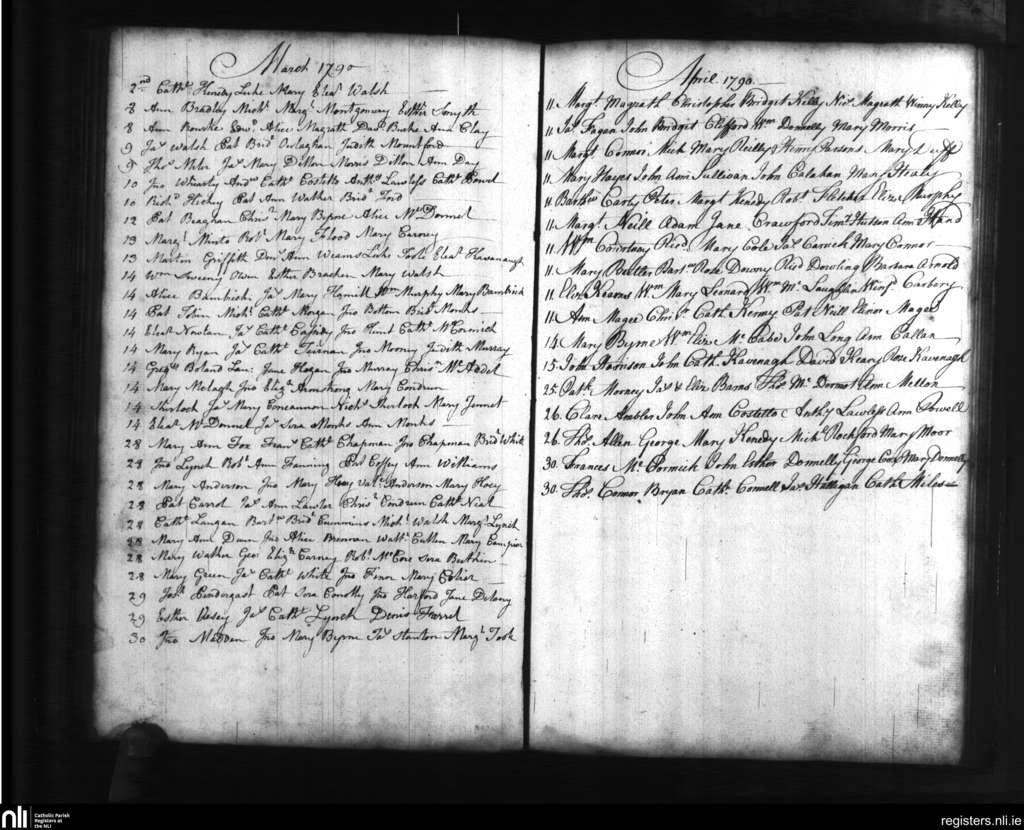 March 1790
2nd Cathe Henedy Luke Mary Elear Walsh
8 Ann Bradley Michl Margt Montgomery Esther Smyth
8 Ann Rourke Edwd Alice Magrath Danl Burke Ann Clay
9 Jas Walsh Pat Bridt Judith Mountford
9 Thos Jas Mary Dillon Morris Dillon Ann Day
10 Jno Andw Cathe Costello Anthy Lawless Cathe
10 Richd Hickey Pat Ann Walker Bridt Ford
12 Pat Beaghan Christ Mary Byrne Alice McDonnel
13 Margt Robt Mary Flood Mary Carney
13 Martin Griffith Ann Luke Toole Eleanr Kavanagh
14 Wm Sweeny Owen Esther Bracken Mary Walsh
14 Alice Bambrick Jas Mary Hamill Wm Murphy Mary Bambrick
14 Pat Tobin Michl Cathe Morgan Jno Bridt Monks
14 Eleanr Nowlan Jas Cathe Cassidy Jno Hunt Cathe McCormick
14 Mary Ryan Jas Cathe Tiernan Jno Mooney Judith Murray
14 Boland Lau: Jane Hogan Jno Murray Christ
14 Mary Jno Elizh Armstrong Mary Condron
14 Sherlock Jas Mary Concannon Nichs Sherlock Mary Jennet
14 Eleanr McDonnel Jas Sera Monks Ann Monks
28 Mary Ann Fox Frans Cathe Chapman Jno Chapman Bridt White
28 Jno Lynch Robt Ann Fanning Pat Coffey Ann Williams
28 Mary Anderson Jno Mary Hoey Anderson Mary Hoey
28 Pat Carrol Jas Ann Lawler Christ Condrun Cathe Neal
28 Cathe Langan Bartw Bridt Cummins Michl Walsh Margt Lynch
28 Mary Ann Dunn Jno Alice Brennan Watt Cullen Mary Campion
28 Mary Walker Geo: Elizh Carney Robt Sera
28 Mary Green Jas Cathe White Jno Mary
29 Josh Pendergast Pat Sera Conolly Jno Harford Jane Delany
29 Esther Vesey Jas Cathe Lynch Denis Farrel
30 Jno Madden Jno Mary Byrne Jas Stanton Margt Took
April 1790
11 Margt Magrath Christopher Bridgit Kelly Nics Magrath Winny Kelly
11 Jas Fagan John Bridgit Clifford Wm Donnelly Mary Morris
11 Margt Connor Mich Mary Reilly Henry Parsons Mary
11 Mary Hayes John Ann Sullivan John Calahan Mary Healy
11 Barthw Carty Peter Margt Kenedy Robt Fletcher Eliza Murphy
11 Margt Neill Adam Jane Crawford Timy Ann Hand
11 Wm Richd Mary Cole Jas Carrick Mary Connor
11 Mary Butler Bartw Rose Downy Richd Dowling Barbara Arnold
11 Eliz Kearns Wm Mary Leonard Wm McLaughlin Winf Carbery
11 Ann Magee Christ Cath Kenny Pat Neill Elinor Magee
14 Mary Byrne Wm Eliza McCabe John Long Ann Callan
15 John Harrison John Cath Kavanagh David Keary Rose Kavanagh
25 Patk Morney Jas & Eliz Barns Thos McDermot Ann Mellon
26 Clare Ambler John Ann Costello Anthy Lawless Ann Powell
26 Thos Allen George Mary Kenedy Michl Rochford Mary Moor
30 Frances McCormick John Esther Donnelly George Cox Mary Donnelly
30 Thos Connor Bryan Cath Connell Jas Halligan Cath Miles
nli
Catholic Parish
Registers at
the NLI
registers.nli.ie